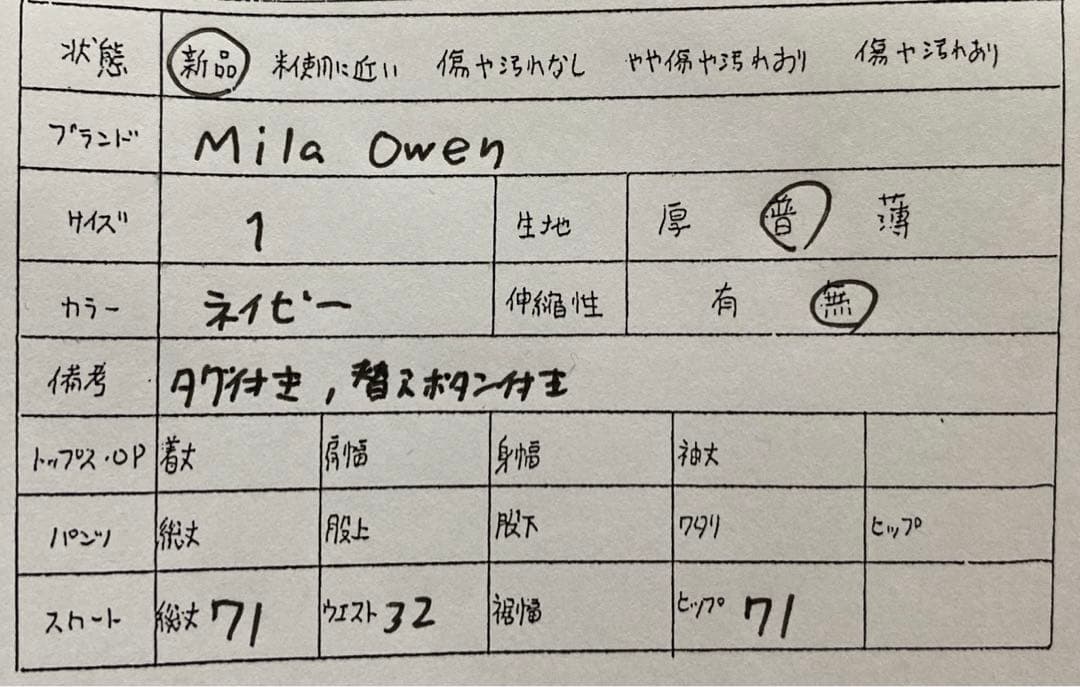 状態 新品 未使用に近い 傷や汚れなし やや傷や汚れあり 傷や汚れあり
ブランド Mila Owen
サイズ 1 生地 厚 普 薄
カラー ネイビー 伸縮性 有 無
備考 タグ付き, 替えボタン付き
トップス・OP 着丈 肩幅 身幅 袖丈
パンツ 総丈 股上 股下 ワタリ ヒップ
スカート 総丈 71 ウエスト 32 裾幅 ヒップ 71